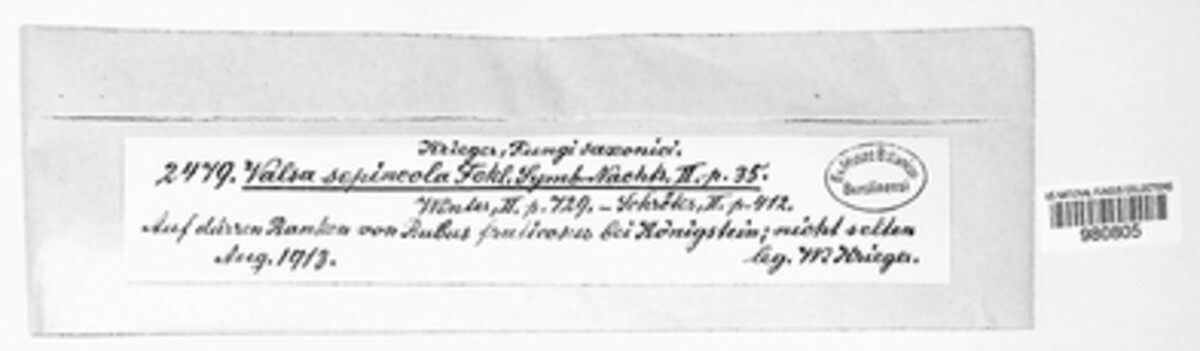 Krieger, Fungi saxonici.
2479. Valsa sepincola Fckl. Symb. Nachtr. III. p. 35.
Winter, II. p. 729. – Schröter, II. p. 412.
Auf dürren Ranken von Rubus fruticosus bei Königstein; nicht selten
Aug. 1913. leg. W. Krieger.
Botanico
Berolinensi
US NATIONAL FUNGUS COLLECTIONS
980805